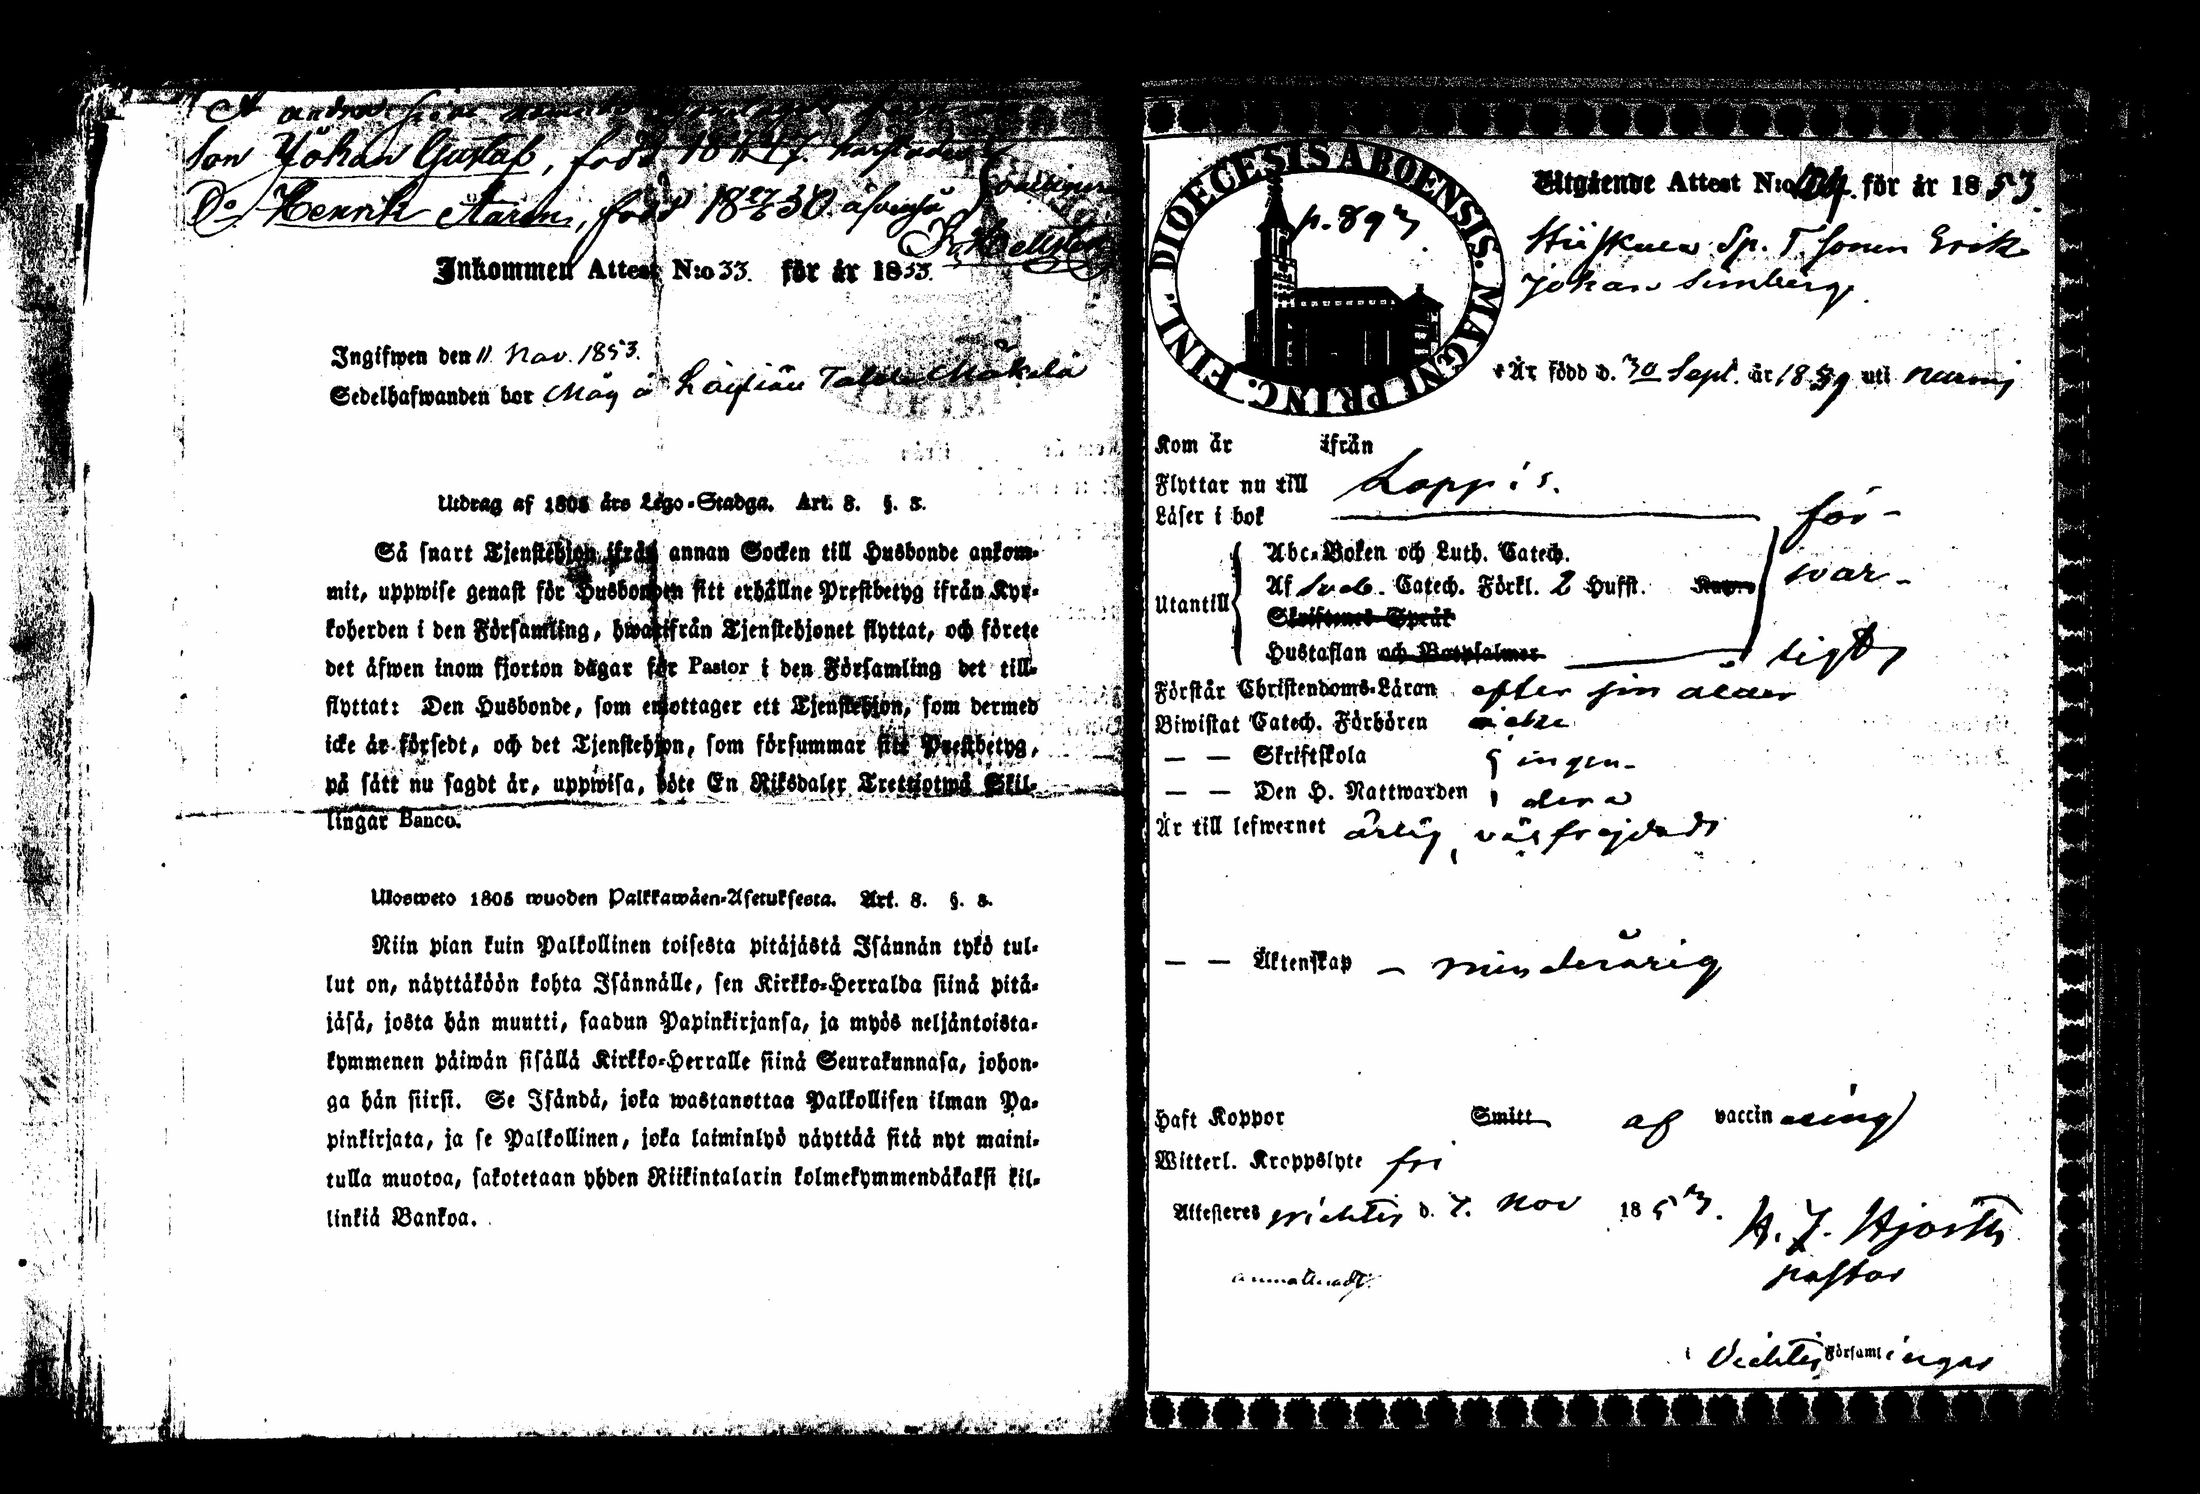 andra
Son Johan Gustaf, född 18 47.
Do Henrik Aaron, född 18 27/6 50 äfvenså
Inkommen Attest N:o 33. för år 1853.
Ingifwen den 11 Nov. 1853.
Sedelhafwanden bor Mäkelä
Utdrag af 1805 års Lego-Stadga. Art. 8. §. 3.
Så snart Tjenstehjon ifrån annan Socken till Husbonde ankom-
mit, uppwise genast för Husbonden sitt erhållne Prestbetyg ifrån Kyr-
koherden i den Församling, hwarifrån Tjenstehjonet flyttat, och förete
det äfwen inom fjorton dagar för Pastor i den Församling det till-
flyttat: Den Husbonde, som emottager ett Tjenstehjon, som dermed
icke är försedt, och det Tjenstehjon, som försummar sitt Prestbetyg,
på sätt nu sagdt är, uppwisa, böte En Riksdaler Trettiotwå Skil-
lingar Banco.
Ulosweto 1805 wuoden Palkkawäen-Asetuksesta. Art. 8. §. 3.
Niin pian kuin Palkollinen toisesta pitäjästä Isännän tykö tul-
lut on, näyttäköön kohta Isännälle, sen Kirkko-Herralda siinä pitä-
jäsä, josta hän muutti, saadun Papinkirjansa, ja myös neljäntoista-
kymmenen päiwän sisällä Kirkko-Herralle siinä Seurakunnasa, johon-
ga hän siirsi. Se Isändä, joka wastanottaa Palkollisen ilman Pa-
pinkirjata, ja se Palkollinen, joka laiminlyö näyttää sitä nyt maini-
tulla muotoa, sakotetaan yhden Riikintalarin kolmekymmendäkaksi kil-
linkiä Bankoa.
DIOECESIS ABOENSIS. MAGNI PRINC. FINL.
p. 893
Utgående Attest N:o för år 1853
Sp. T. sonen Erik
Johan Simberg.
Är född d. 30 Sept. år 1839 uti Nurmij
Kom år ifrån
Flyttar nu till Loppis.
Läser i bok för-
Utantill
Abc-Boken och Luth. Catech.
Af Sveb. Catech. Förkl. 2 Hufst. svar-
Skriftenes Språk
Hustaflan och Botpsalmer ligt
Förstår Christendoms-Läran efter sin ålder
Biwistat Catech. Förhören
— — Skriftskola ingen-
— — Den H. Nattwarden dera
Är till lefwernet ärlig, välfrejdad
— — Äktenskap – minderårig
Haft Koppor Smitt af vaccin ering
Witterl. Kroppslyte fri
Attesteres Wichtis d. 7. Nov 1853. A. J. Hjorth
pastor
i Vichtis Församl ingar